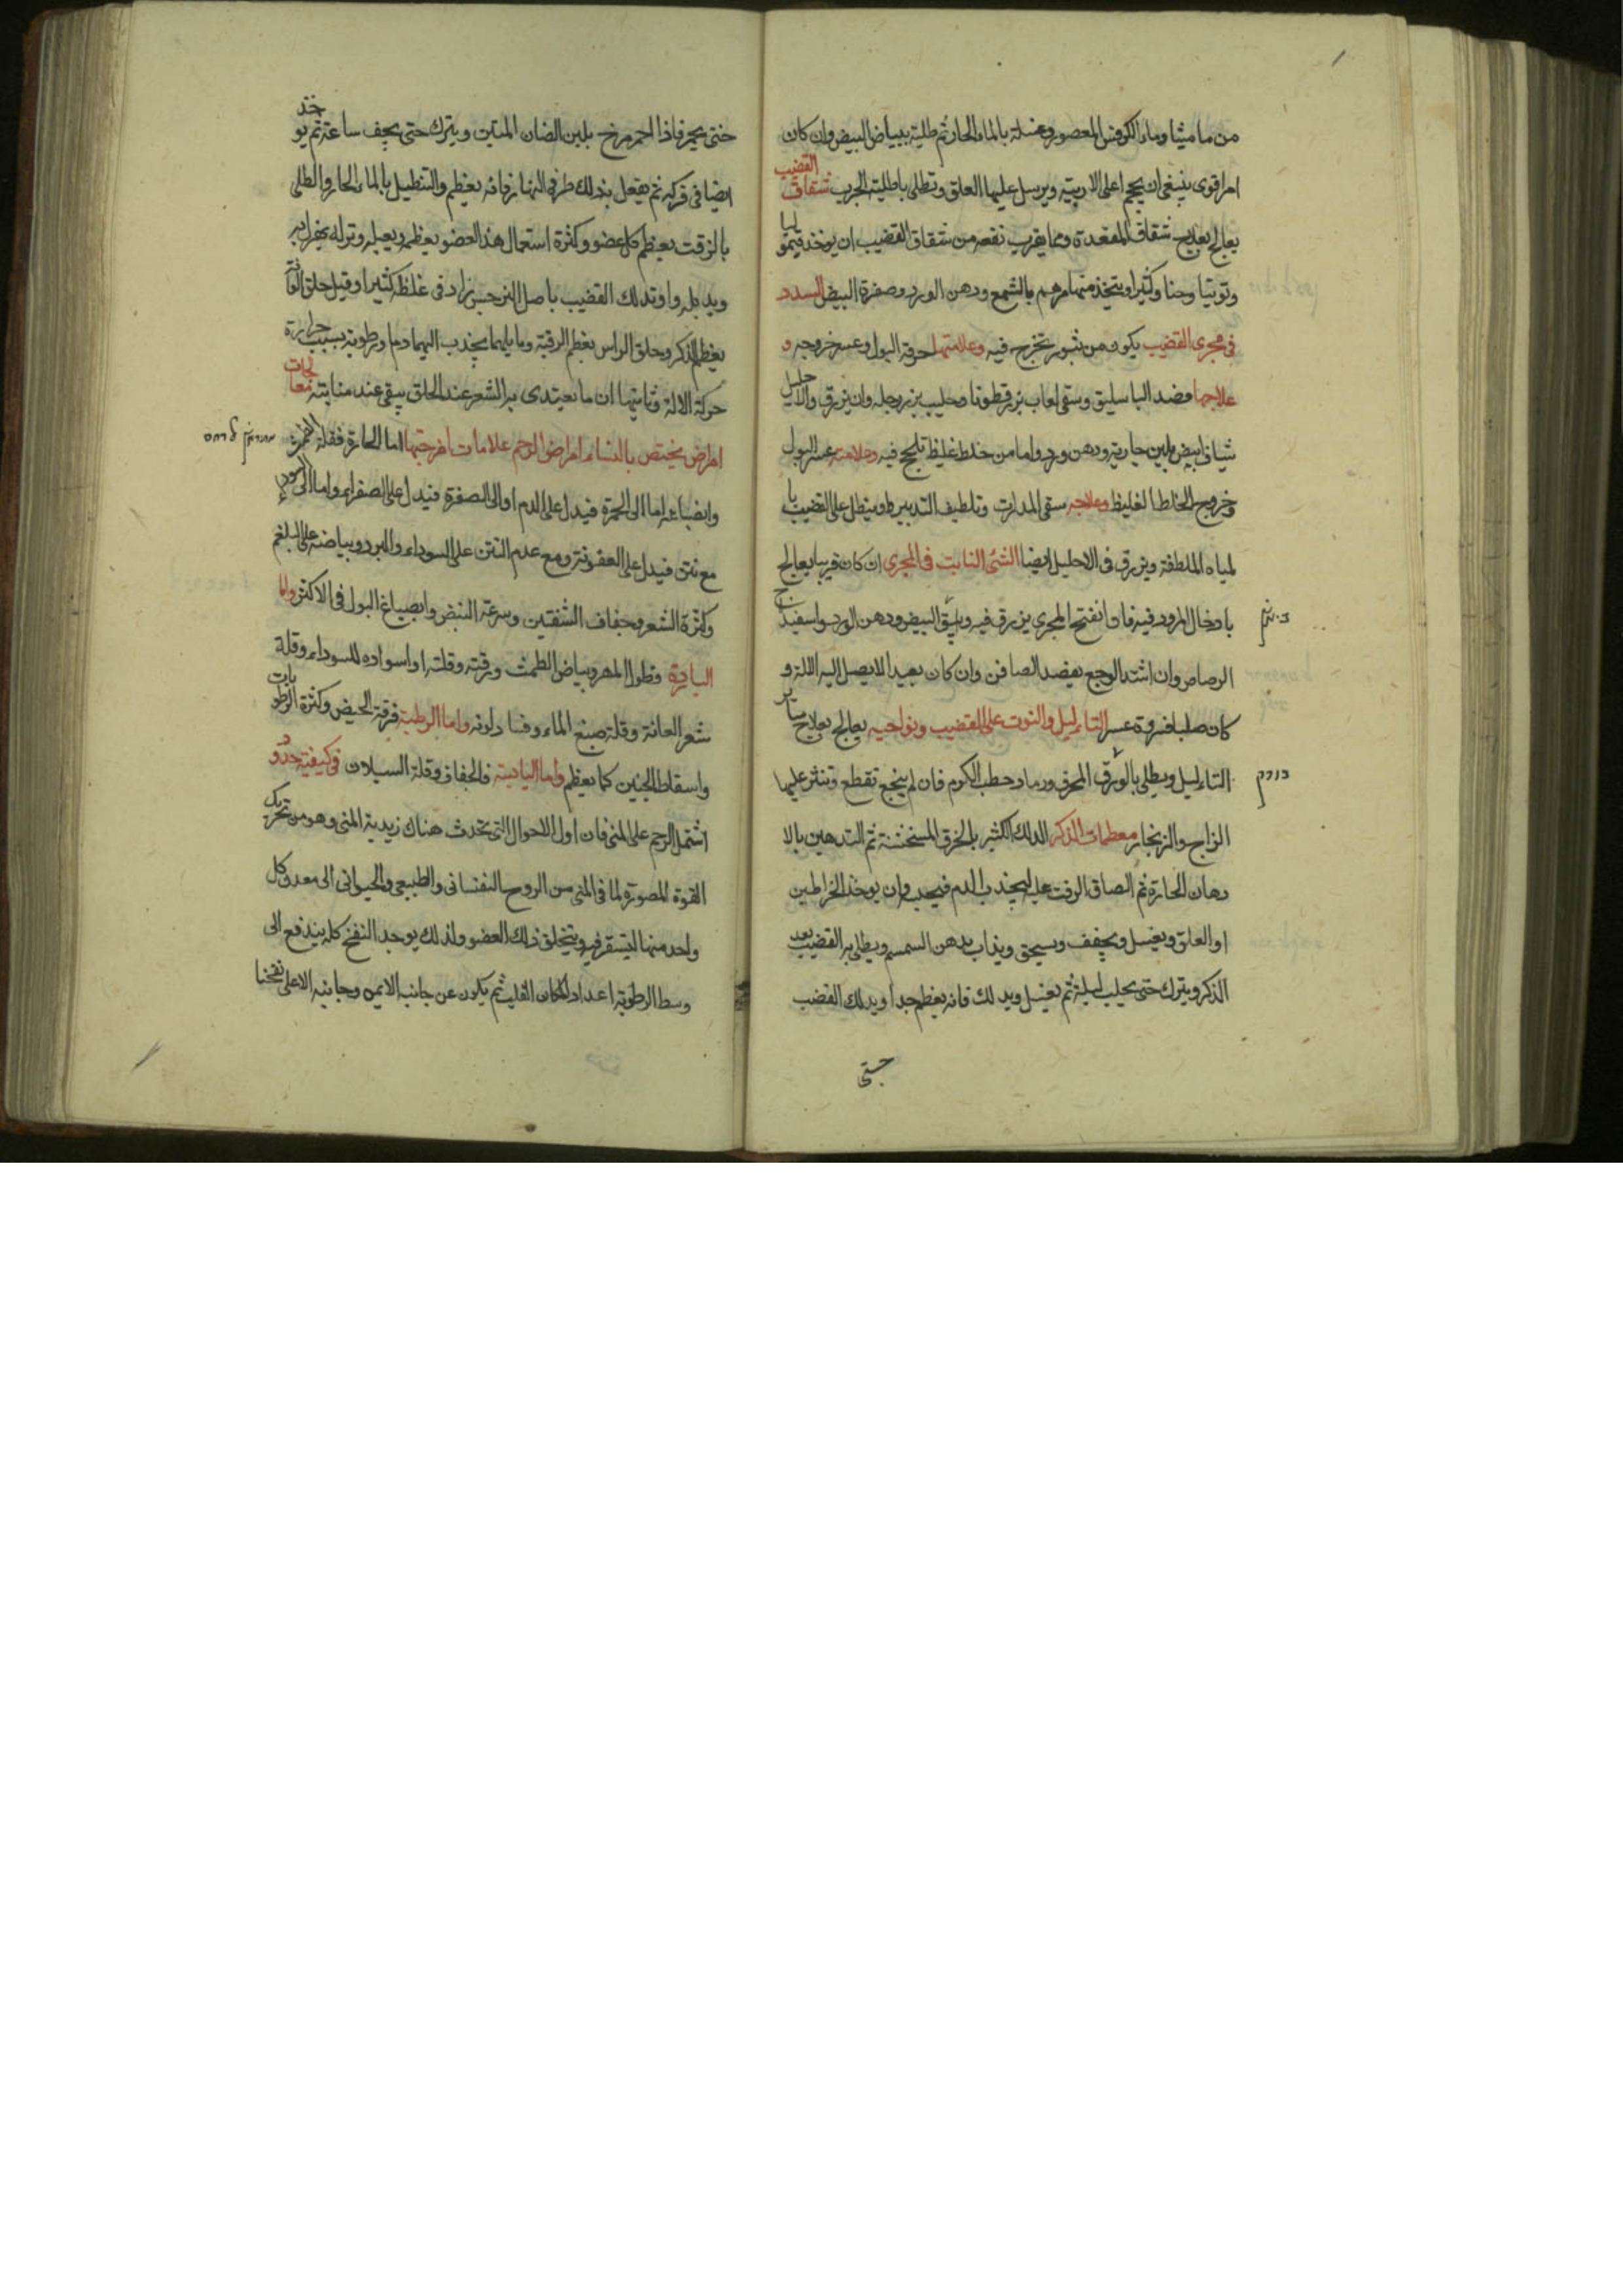 من ماميثا وماء الكرفس المعصور وغسله بالماء الحار ثم طليته ببياض البيض وان كان
امرا قوى ينبغى ان يحجم اعلى الاربيه ويرسل عليها العلق وتطلى باطلية الجرب شقاق القضيب
يعالج بعلاج شقاق المقعدة ومما يقرب نفعه من شقاق القضيب ان يوخذ قيموليا
وتوتيا وحنا وكثيرا ويتخذ منها مرهم بالشمع ودهن الورد وصفرة البيض السدد
فى مجرى القضيب يكون من بثور تخرج فيه وعلامتها حرقة البول وعسر خروجه و
علاجها فصد الباسليق وسقى لعاب بزر قطونا وحليب بزر رجله وان يزرق والاحليل
شياف ابيض بلبن جارية ودهن ورد واما من خلط غليظ تلحج فيه وعلامته عسر البول
وخروج الخلط الغليظ وعلاجه سقى المدرات وتلطيف التدبير وينطل على القضيب با
لمياه الملطفة ويزرق فى الاحليل ايضا الشئ النابت فى المجرى ان كان قريبا يعالج
بادخال المرود فيه فاذا انفتح المجرى يزرق فيه وبيق البيض ودهن الورد واسفيذاج
الرصاص وان اشتد الوجع يفصد الصافن وان كان بعيدا لا يصل اليه الالة و
كان صلبا فبروه عسر الثاءليل والتوت على القضيب ونواحيه يعالج بعلاج ساير
الثاءليل ويطلى بالورق المحرق ورماد حطب الكروم فان لم ينجع تقطع وتنثر عليها
الزاج والزنجار معظمات الذكر الدلك الكثير بالخرق المسخنة ثم التدهين بالا
دهان الحارة ثم الصاق الزفت عليه ليجذب الدم فيحبسه وان يوخذ الخراطين
او العلق ويغسل ويجفف ويسحق ويذاب بدهن السمسم ويطلى به القضيب بعد
الذكر ويترك حتى يحليب ليلة ثم يغسل ويدلك فانه يعظم جدا ويدلك القضب
حتى
حتى يحمر فاذا احمر مرخ بلبن الضان المتين ويترك حتى يجف ساعة ثم يوخذ
ايضا فى فركه ثم يفعل بذلك طرفى النهار فانه يعظم والتنطيل بالماء الحار والطلى
بالزفت يعظم كل عضو وكثرة استعمال هذا العضو يعظمه ويعبله وتركه يهزله
ويدبله واوتدلك القضيب باصل النرجس زاد فى غلظه كثيرا وقيل حلق العانة
يعظم الذكر وحلق الراس يعظم الرقبة وما يليهما يجذب اليهما دما ورطوبة بسبب حرارة
حركة الالة وثانيهما ان ما يغتدى به الشعر عند الحلق يبقى عند منابته معالجات
امراض يختص بالنساء امراض الرحم علامات امزجتها اما الحارة فقلة الطمث
وانصباغه اما الى الحمرة فيدل على الدم او الى الصفرة فيدل على الصفراء واما الى السواد
مع نتن فيدل على العفونة ومع عدم النتن على السوداء والبرد وبياضه على البلغم
وكثرة الشعر وجفاف الشفتين وسرعة النبض وانصباغ البول فى الاكثر واما
الباردة فطول الطهر وبياض الطمث ورقته وقلته او اسواده للسوداء وقلة
شعر العانة وقلة صبغ الماء وفساد لونه واما الرطبة فرقة الحيض وكثرة الرطوبات
واسقاط الجنين كما يعظم واما اليابسة فالجفاف وقلة السيلان فى كيفية حدوث
اشتمل الرحم على المنى فان اول الاحوال التى تحدث هناك زبدية المنى وهو من تحريك
القوة المصورة لما فى المنى من الروح النفسانى والطبيعى والحيوانى الى معدن كل
واحد منها ليستقر فيه ويتخلق ذلك العضو ولذلك يوجد النفخ كله يندفع الى
وسط الرطوبة اعداد المكان القلب ثم يكون عن جانبه الايمن وجانبه الاعلى نفخنا